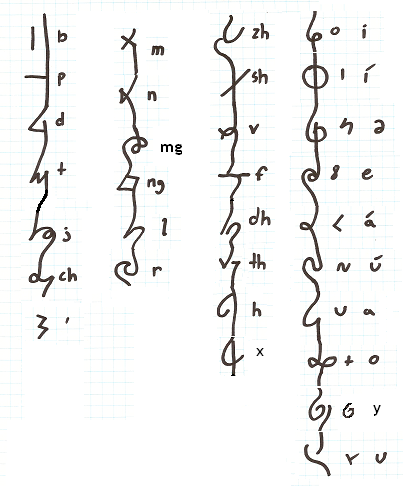 b
p
d
t
j
ch
3 '
m
n
mg
ng
l
r
zh
sh
v
f
dh
th
h
x
o i
ı í
ə
8 e
< á
N ú
U a
+ o
G y
r u